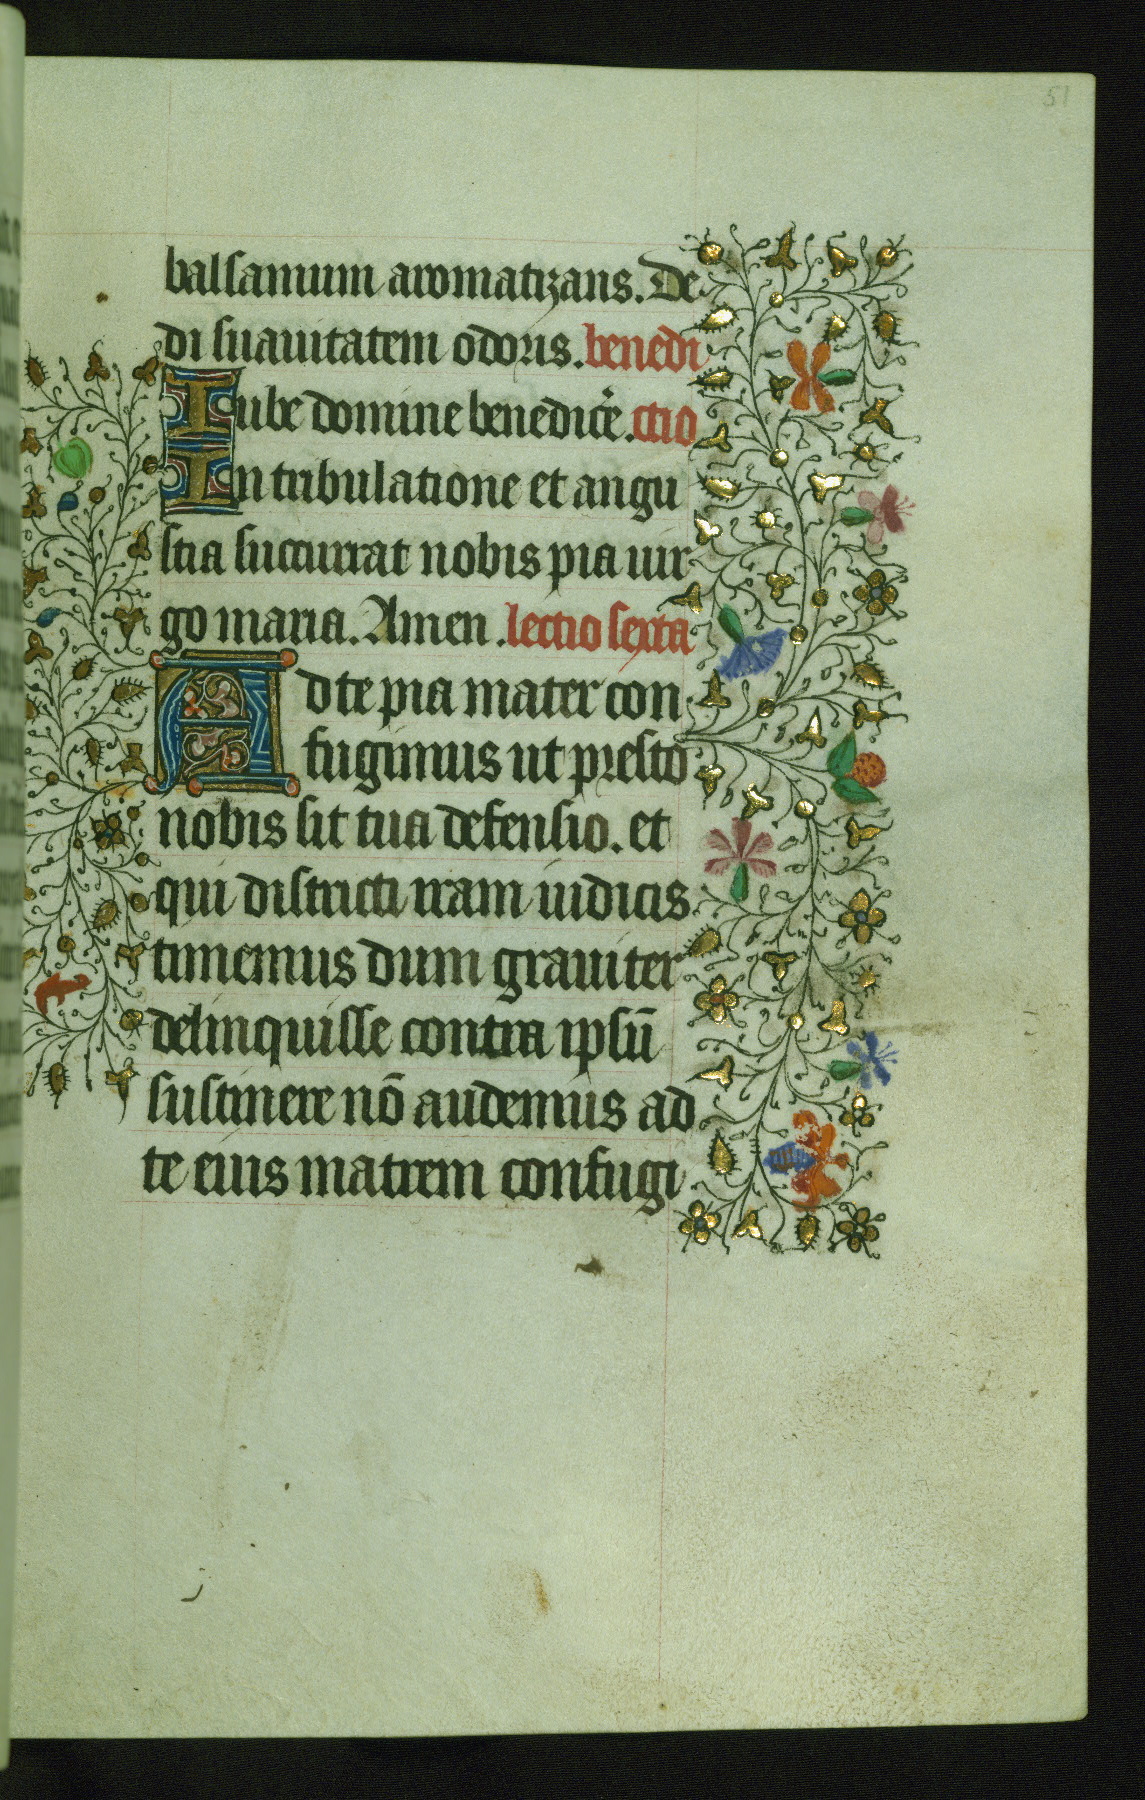 51
balsamum aromatizans. De
di suauitatem odoris. benedi
Iube domine benedic̄e. ctio
In tribulatione et angu
stia succurrat nobis pia uir
go maria. Amen. lectio sexta
Ad te pia mater con
fugimus ut presto
nobis sit tua defensio. et
qui districti iram iudicis
timemus dum grauiter
delinquisse contra ipsū
sustinere nō audemus ad
te eius matrem confugi